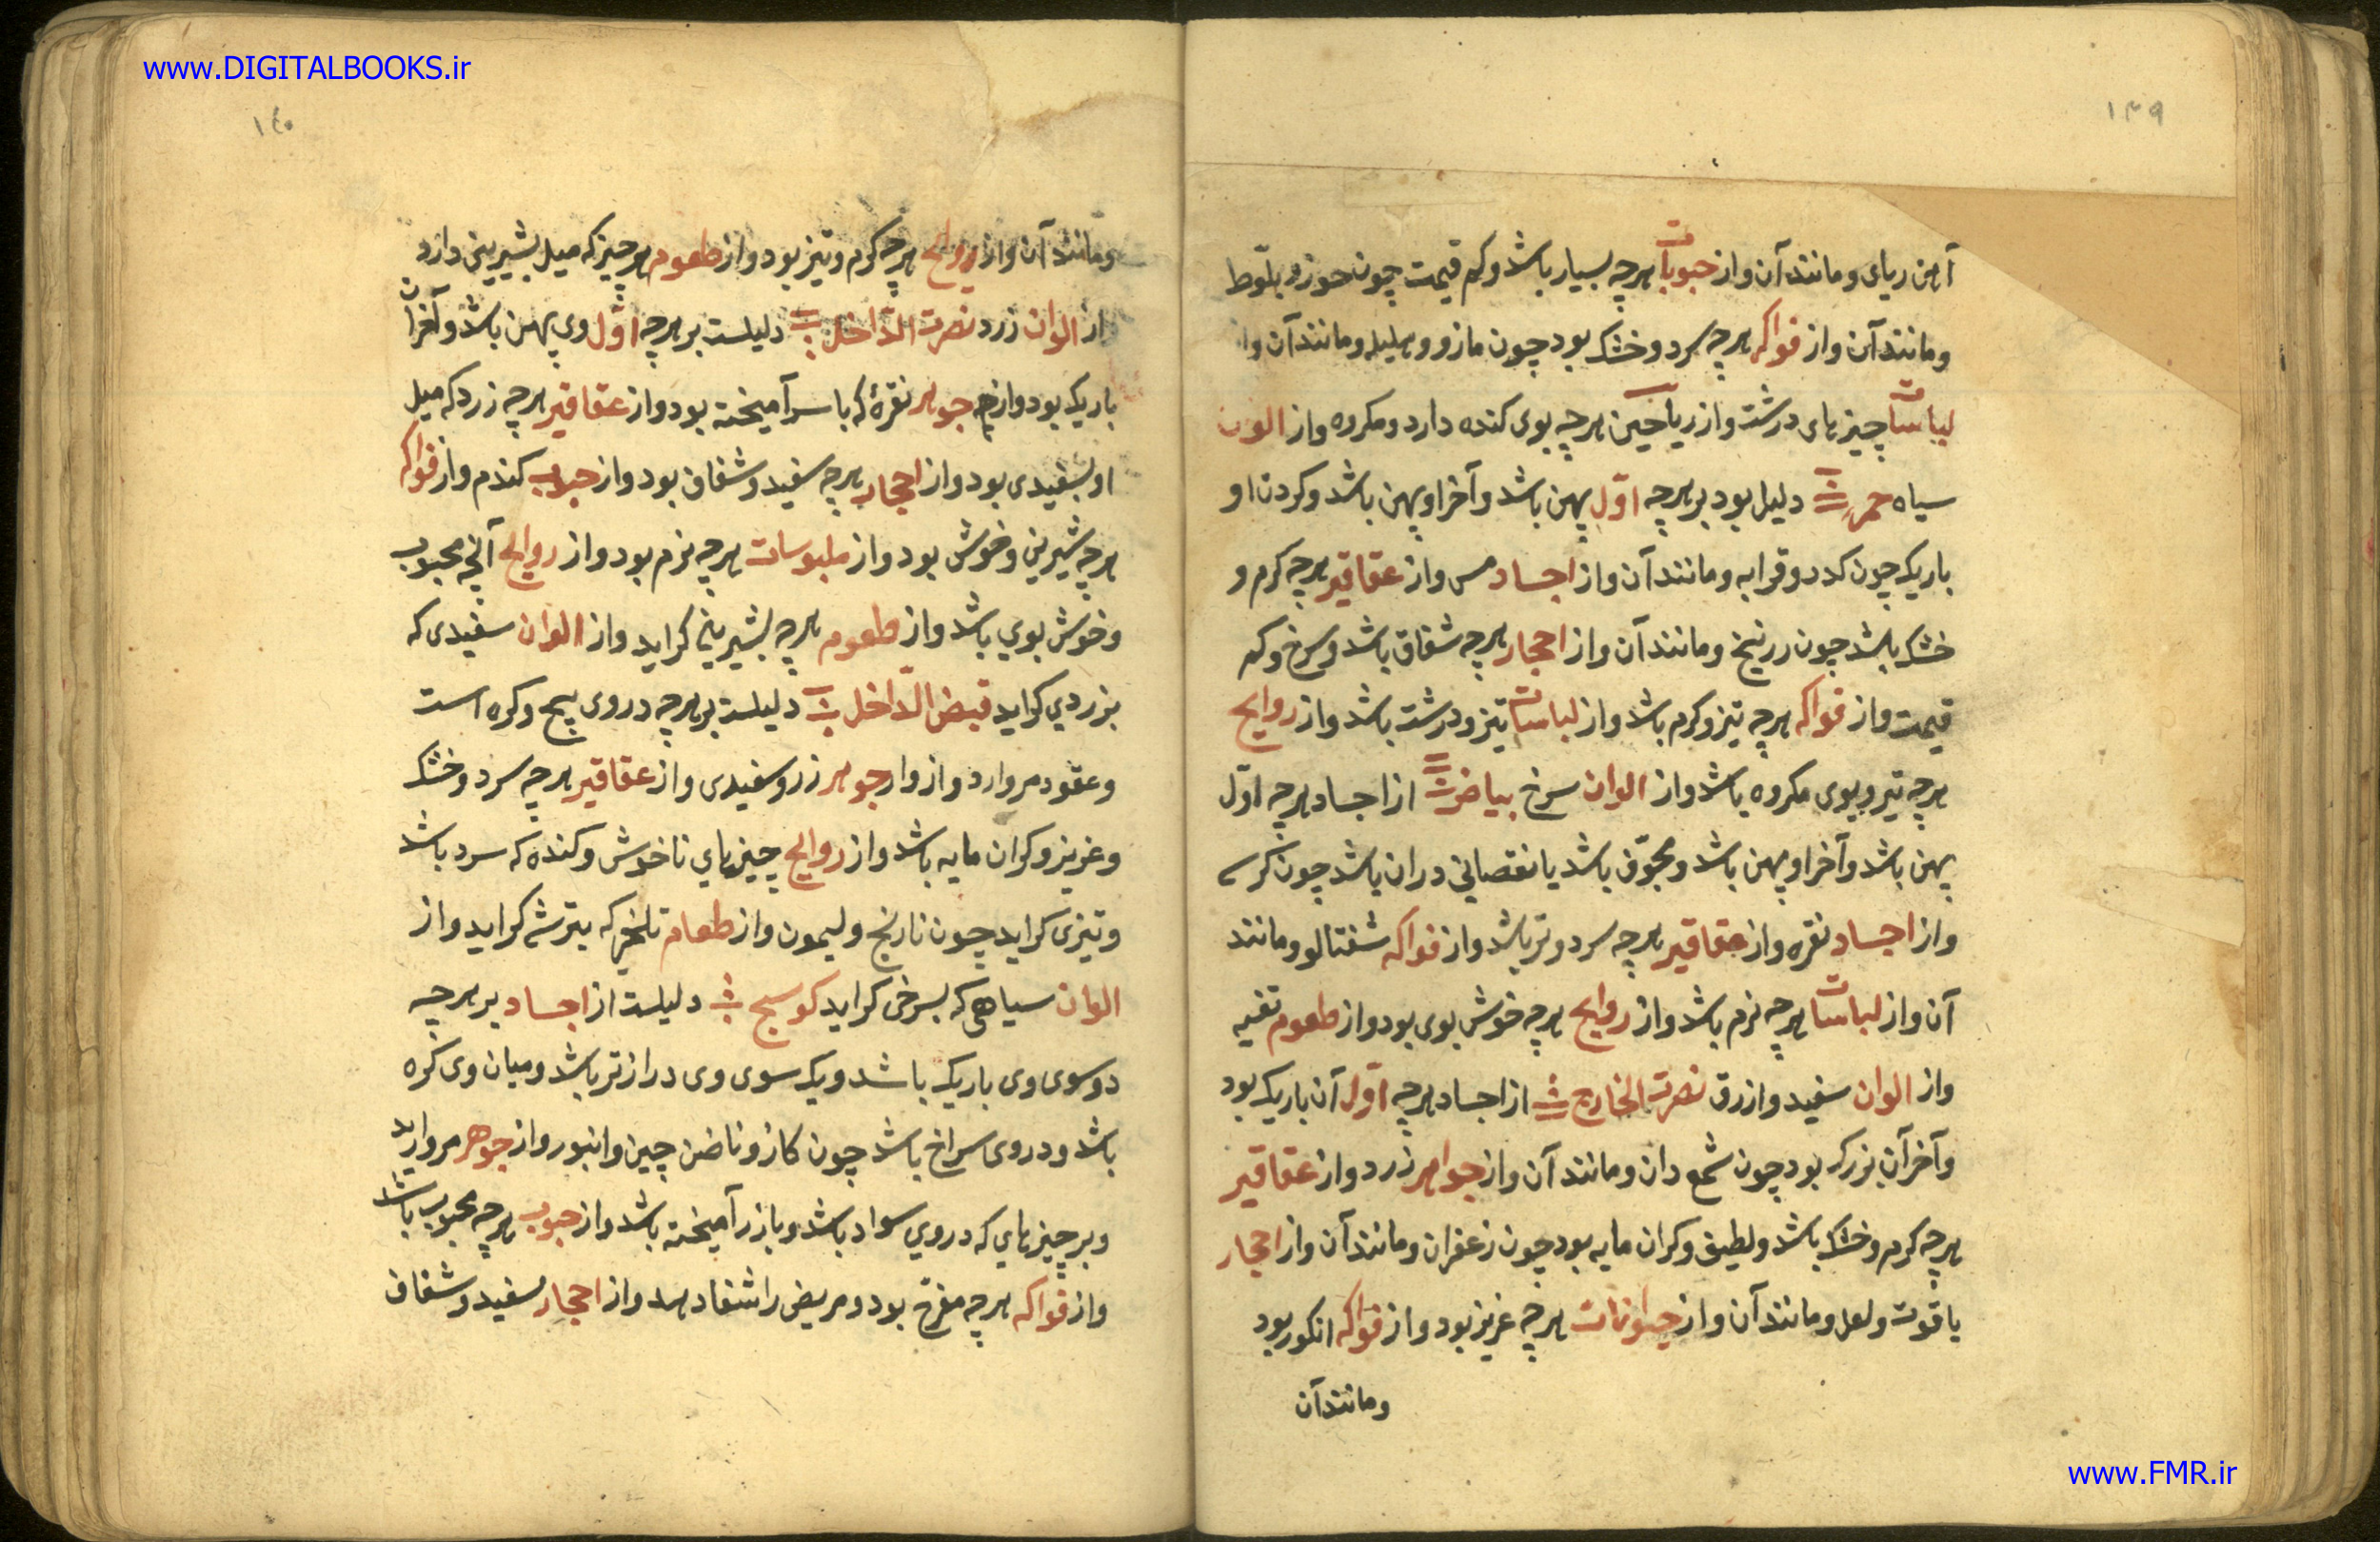 www.DIGITALBOOKS.ir
۱۳۹
آهن ریای و مانند آن و از حبوبات هرچه بسیار باشد و کم قیمت چون حوز و بلّوط
و مانند آن و از فواکه هرچه سرد و خشک بود چون مازو و هلیله و مانند آن و از
لباسات چیزهای درشت و از ریاحین هرچه بوی کنده دارد و مکروه و از الون
سیاه حمره دلیل بود بر هرچه اوّل پهن باشد و آخر او پهن باشد و کردن او
باریک چون کدو و قرابه و مانند آن و از اجساد مس و از عقاقیر هرچه کرم و
خشک باشد چون زرنیخ و مانند آن و از احجار هرچه شفاف باشد و سرخ و کم
قیمت و از فواکه هرچه تیز و کرم باشد و از لباسات تیز و درشت باشد و از روایح
هرچه تیز و بوی مکروه باشد و از الوان سرخ بیاض از اجساد هرچه اوّل
پهن باشد و آخر او پهن باشد و مجوّف باشد یا نقصانی در ان باشد چون کرسی
و از اجساد نقره و از عقاقیر هرچه سرد و تر باشد و از فواکه شفتالو و مانند
آن و از لباسات هرچه نرم باشد و از روایح هرچه خوش بوی بود و از طعوم تفیه
و از الوان سفید و ازرق نصرت الخارج از اجساد هرچه اوّل آن باریک بود
و آخر آن بزرک بود چون شمع دان و مانند آن و از جواهر زرد و از عقاقیر
هرچه کرم و خشک باشد و لطیف و کران مایه بود چون زعفران و مانند آن و از احجار
یاقوت و لعل و مانند آن و از حیوانات هرچه عزیز بود و از فواکه انکور بود
و مانند آن
۱۴۰
و مانند آن و از روایح هرچه کرم و تیز بود و از طعوم هرچیز که میل بشیرینی دارد
و از الوان زرد نصرت الدّاخل دلیلست بر هرچه اوّل وی پهن باشد و آخر آن
باریک بود و از جوهر نقرهٔ که با سرآمیخته بود و از عقاقیر هرچه زرد که میل
او بسفیدی بود و از احجار هرچه سفید و شفاف بود و از حبوب کندم و از فواکه
هرچه شیرین و خوش بود و از ملبوسات هرچه نرم بود و از روایح آنچه محبوب
و خوش بوی باشد و از طعوم هرچه بشیرینی کراید و از الوان سفیدی که
بزردی کراید قبض الدّاخل دلیلست بر هرچه در وی پیچ و کره است
و عقود مروارد و از وار جوهر زر و سفیدی و از عقاقیر هرچه سرد و خشک
و عزیز و کران مایه باشد و از روایح چیزهای ناخوش و کنده که سرد باشد
و تیزی کراید چون نارنج و لیمون و از طعام تلخی که بترشی کراید و از
الوان سیاهی که بسرخی کراید کوسج دلیلست از اجساد بر هرچه
دو سوی وی باریک باشد و یک سوی وی درازتر باشد و میان وی کره
باشد و در وی سراخ باشد چون کاز و ناخن چین و انبور و از جوهر مروارید
و بر چیزهای که در وی سواد باشد و با زر آمیخته باشد و از حبوب هرچه محبوب باشد
و از فواکه هرچه مفرّح بود و مریض را شفا دهد و از احجار سفید و شفاف
www.FMR.ir